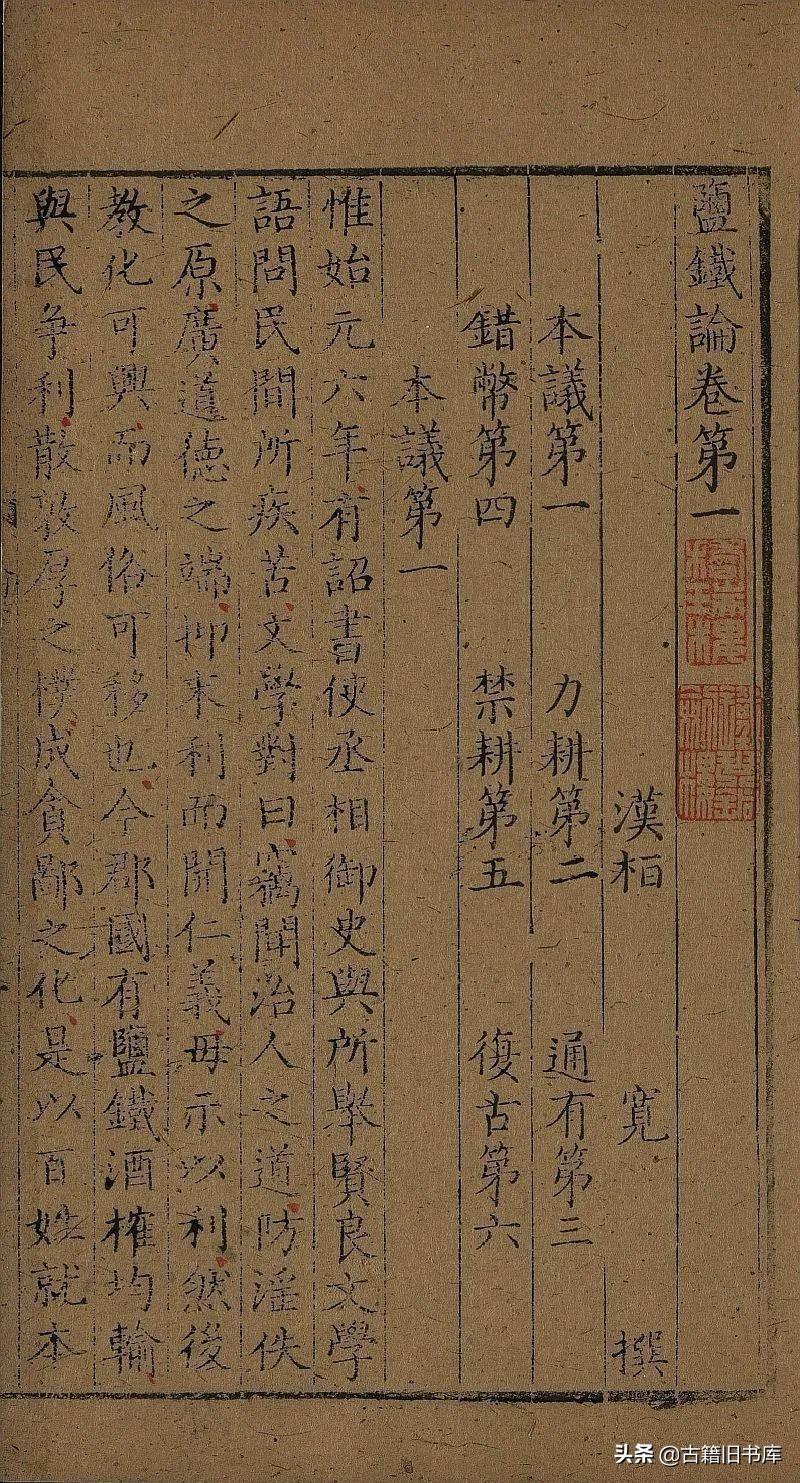 鹽鐵論卷第一
漢栢 寬 撰
本議第一 力耕第二 通有第三
錯幣第四 禁耕第五 復古第六
本議第一
惟始元六年有詔書使丞相御史與所舉賢良文學
語問民間所疾苦文學對曰竊聞治人之道防淫佚
之原廣道德之端抑末利而開仁義毋示以利然後
教化可興而風俗可移也今郡國有鹽鐵酒榷均輸
與民争利散敦厚之樸成貪鄙之化是以百姓就本
头条 @古籍旧书库